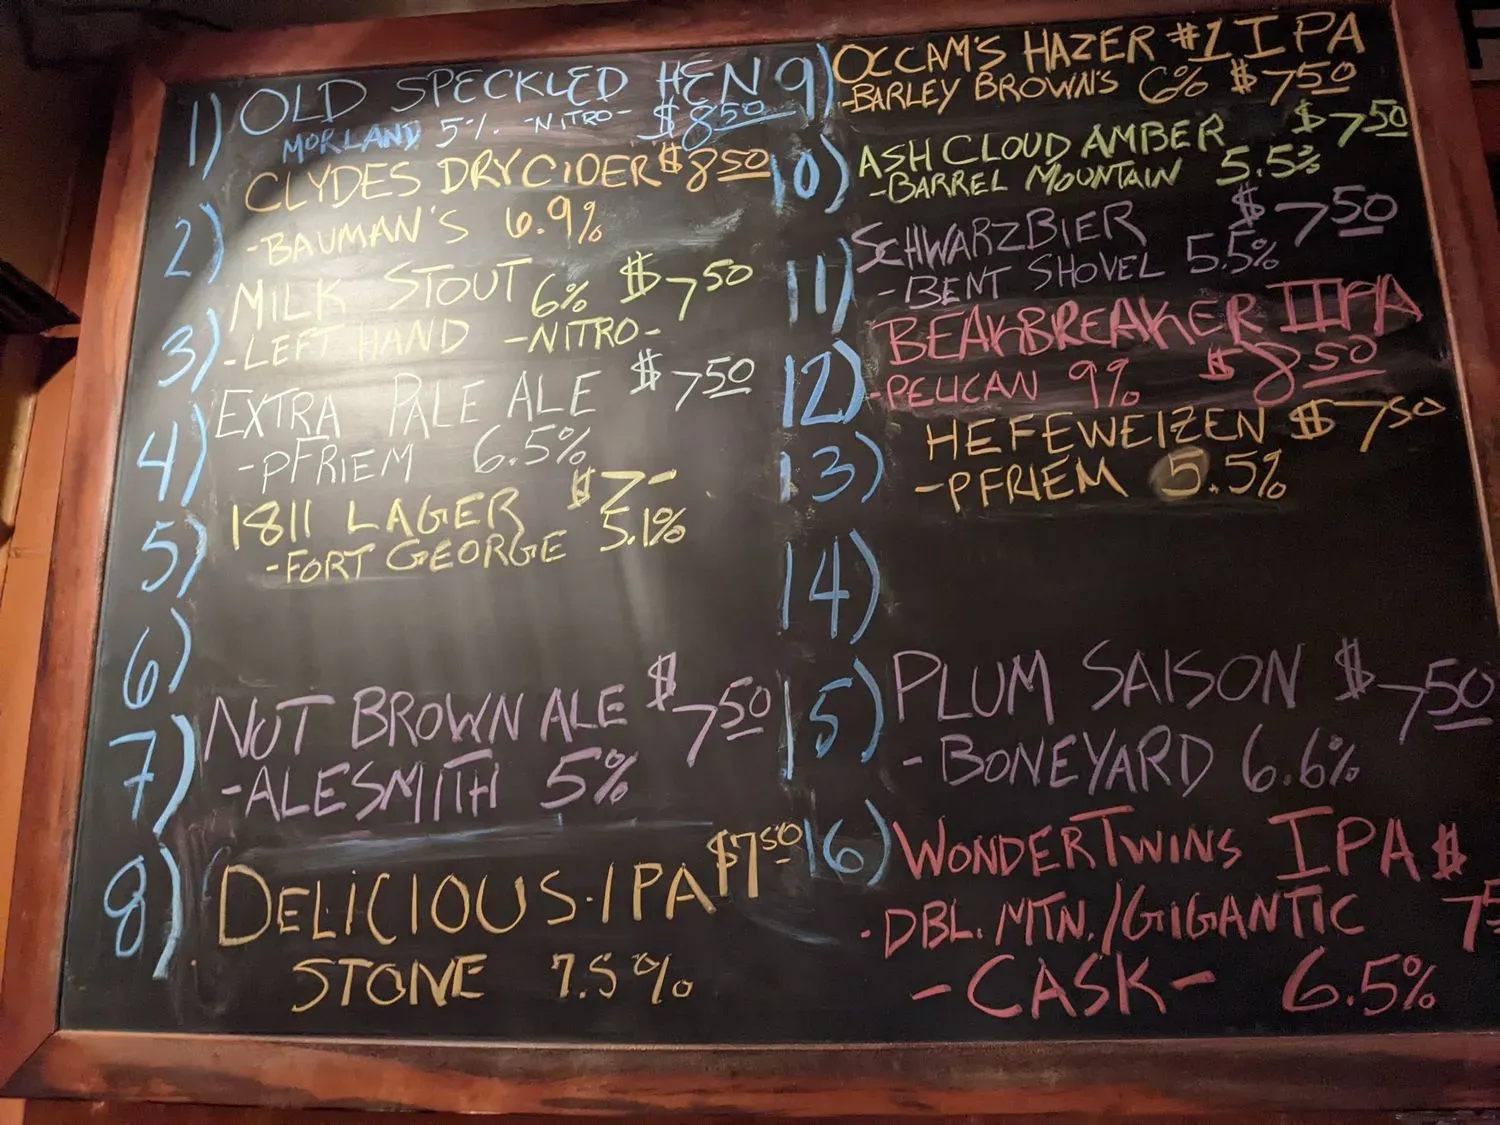 1) OLD SPECKLED HEN
MORLAND 5% -NITRO- $8.50
2) CLYDES DRY CIDER $8.50
-BAUMAN'S 6.9%
3) MILK STOUT 6% $7.50
-LEFT HAND -NITRO-
4) EXTRA PALE ALE $7.50
-PFRIEM 6.5%
5) 1811 LAGER $7-
-FORT GEORGE 5.1%
6)
7) NUT BROWN ALE $7.50
-ALESMITH 5%
8) DELICIOUS·IPA $7.50
STONE 7.5%
9) OCCAM'S HAZER #1 IPA
-BARLEY BROWN'S 6% $7.50
10) ASH CLOUD AMBER $7.50
-BARREL MOUNTAIN 5.5%
11) SCHWARZBIER $7.50
-BENT SHOVEL 5.5%
12) BEAKBREAKER IIPA
-PELICAN 9% $8.50
13) HEFEWEIZEN $7.50
-PFRIEM 5.5%
14)
15) PLUM SAISON $7.50
-BONEYARD 6.6%
16) WONDERTWINS IPA $
-DBL. MTN./GIGANTIC 75
-CASK- 6.5%